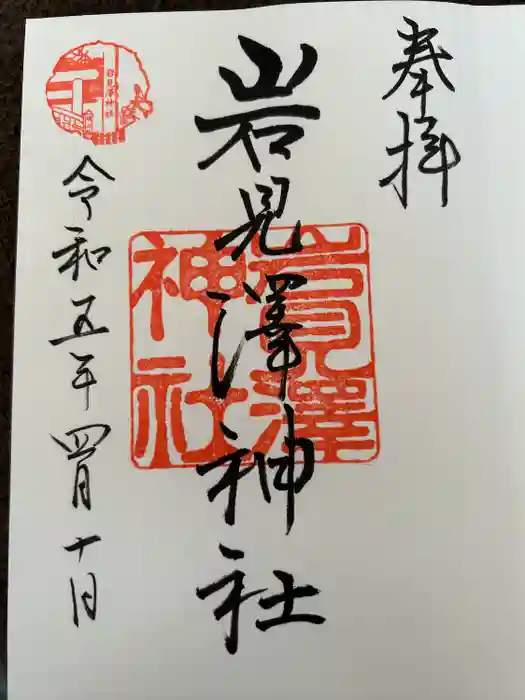 奉拝
岩見澤神社
岩見澤神社
令和五年四月十日
岩見澤神社